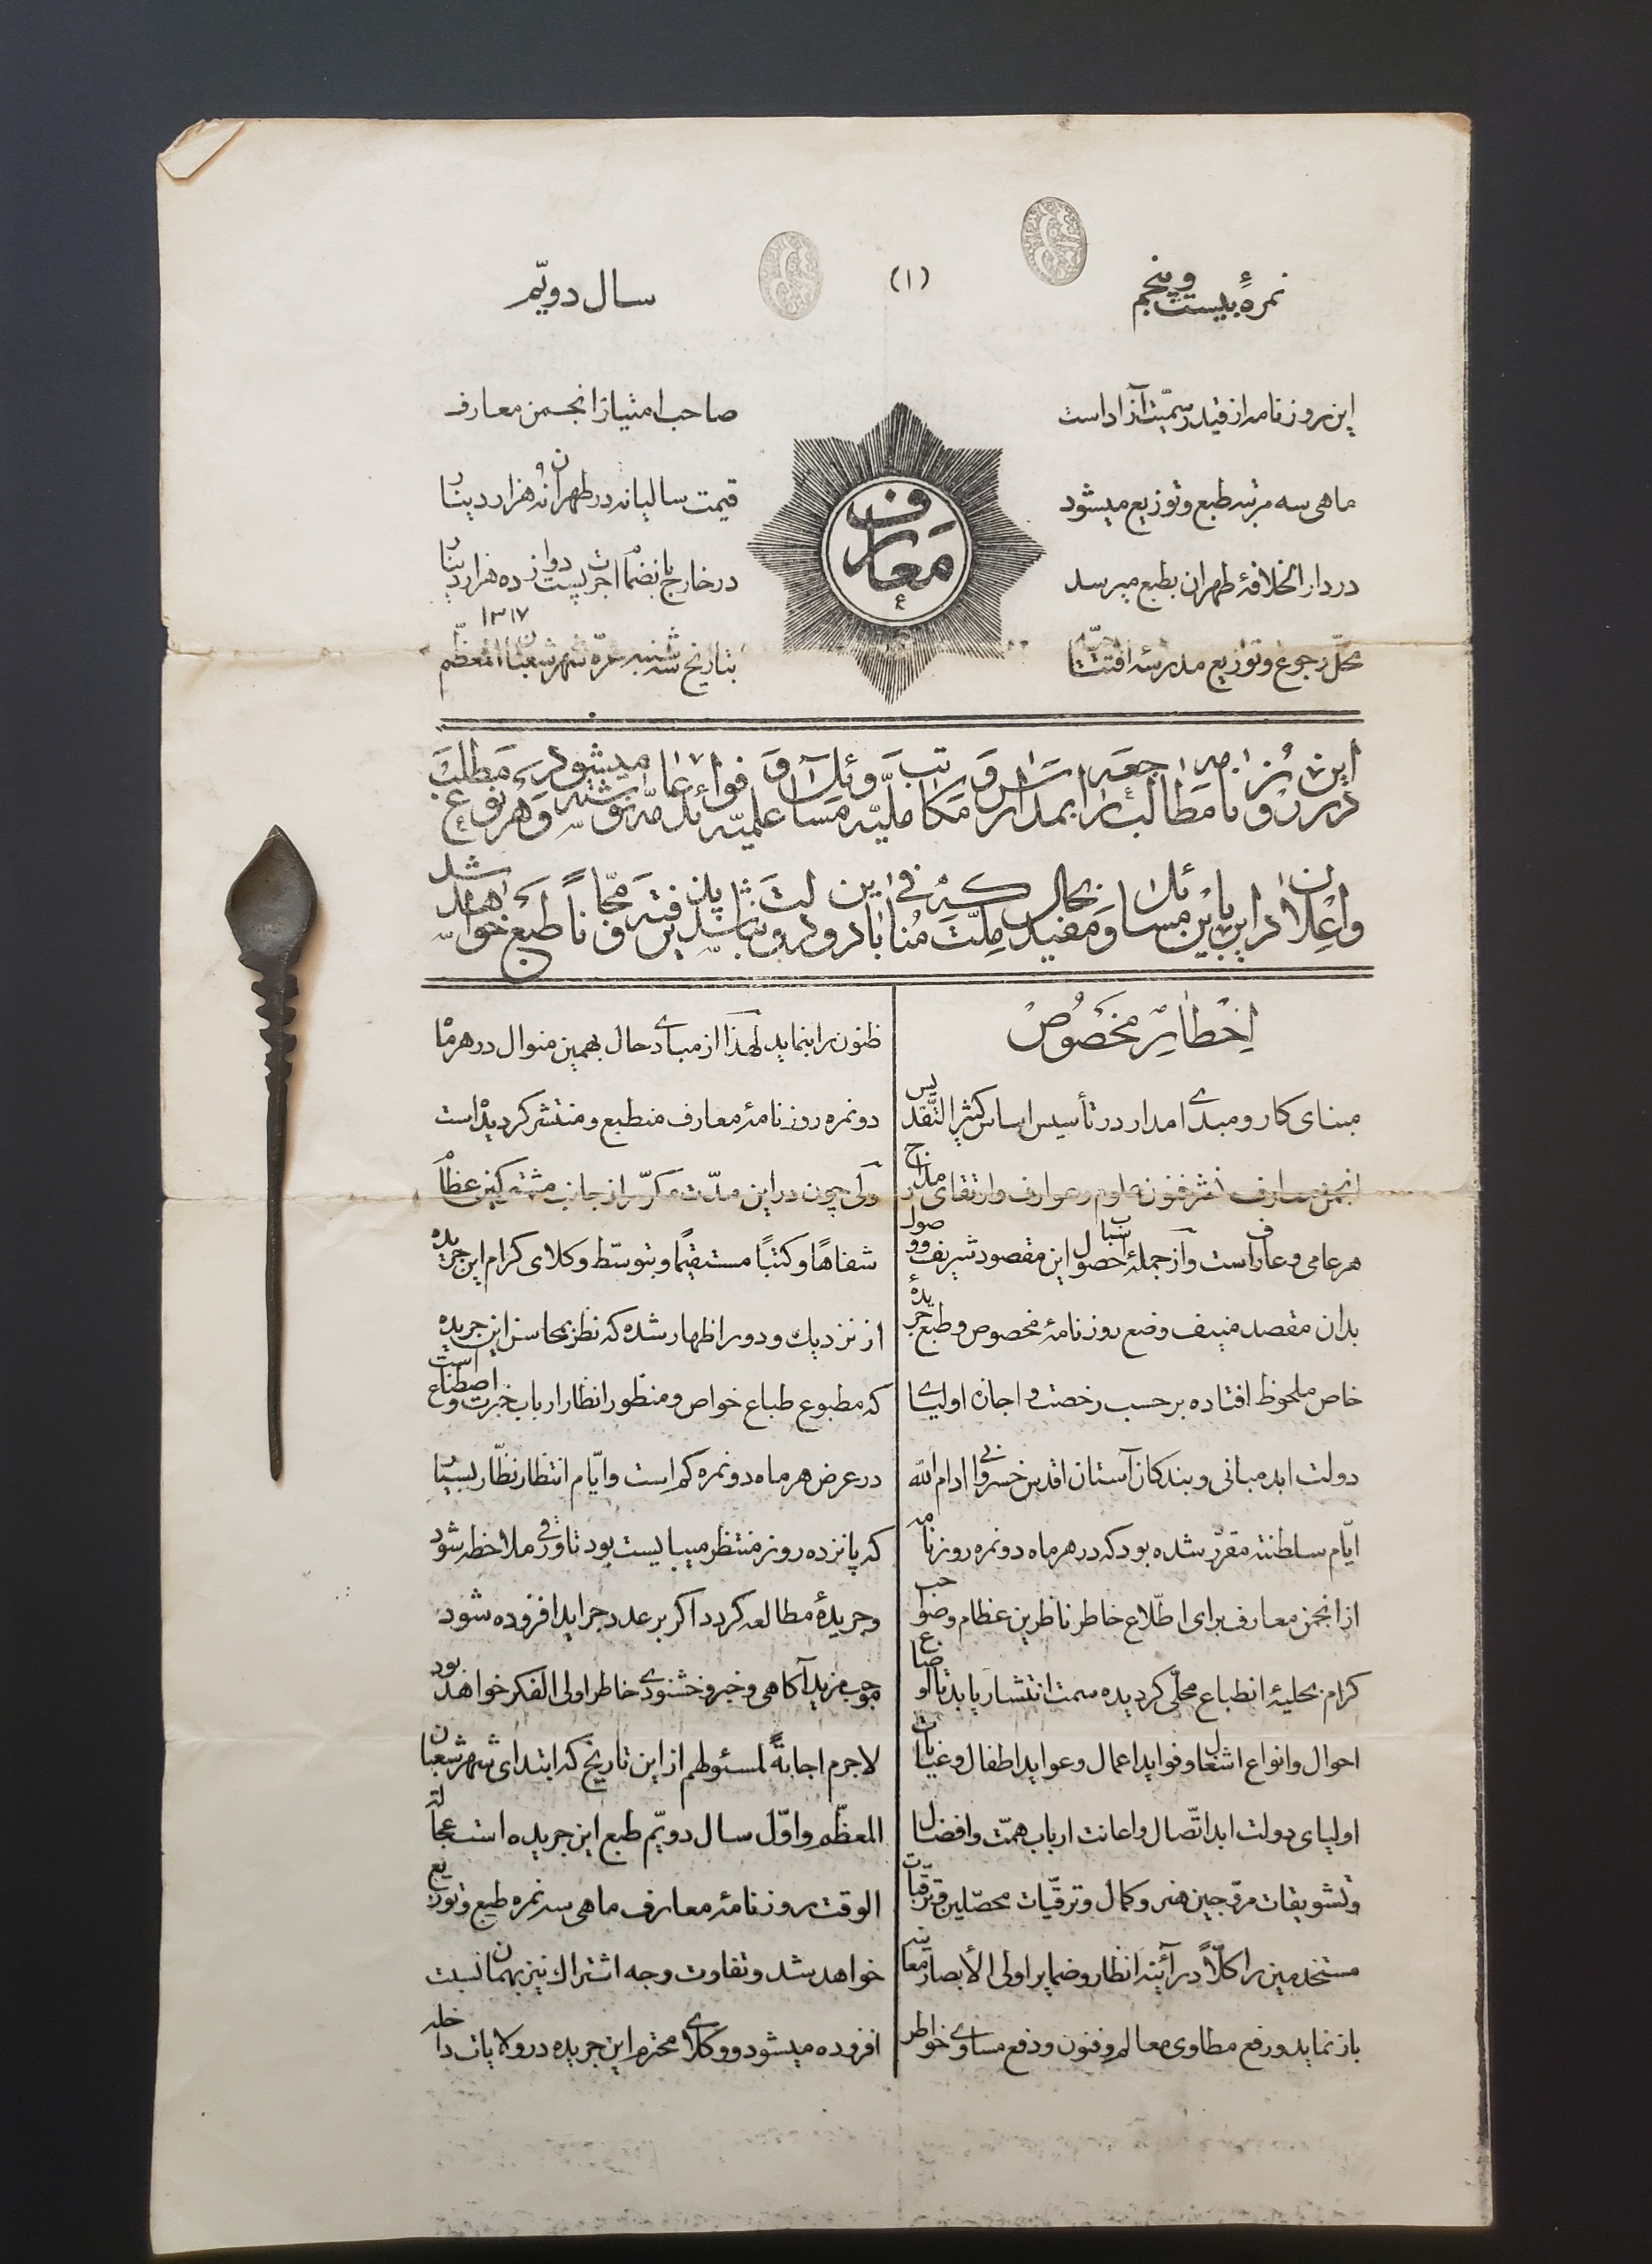 نمرهٔ بیست و پنجم
(۱)
سال دویّم
این روزنامه از قید رسمیّت آزاد است
ماهی سه مرتبه طبع و توزیع میشود
در دار الخلافهٔ طهران بطبع میرسد
محلّ رجوع و توزیع مدرسهٔ افتتاحیّه
معارف
صاحب امتیاز انجمن معارف
قیمت سالیانه در طهران نُه هزار دینار
در خارج بانضمام اجرت پست دوازده هزار دینار
۱۳۱۷
بتاریخ شنبه غرّه شهر شعبان المعظّم
این روزنامه مراجعه
در مطالب را بمدارس و مکاتب ملیّه و مسائل علمیّه و فوائد عامّه نوشته میشود و هر نوع مطلب
و اعلان در این باب مسائل مفید بحال ملّت که منافی با دین و دولت نباشد پذیرفته و مجّاناً طبع خواهد شد
اِخطارِ مخصُوص
مبنای کار و مبدء امدار در تأسیس اساس کثیر التّقدیس
انجمن معارف نشر فنون علوم و عوارف و ارتقای مدارج
هر عامی و عارف است و از جملهٔ اسباب حصول این مقصود شریف و وصول
بدان مقصد منیف وضع روزنامهٔ مخصوص و طبع جریدهٔ
خاص ملحوظ افتاده بر حسب رخصت و اجازه اولیای
دولت ابد مبانی و بندکان آستان اقدس خسروانی ادام الله
ایّام سلطنته مقرّر شده بود که در هر ماه دو نمره روزنامه
از انجمن معارف برای اطّلاع خاطر ناظرین عظام و صواحب
کرام بحلیهٔ انطباع محلّی کردیده سمت انتشار یابد تا اوضاع
احوال و انواع اشغال و فواید اعمال و عواید اطفال و غیابت
اولیای دولت ابد اتّصال و اعانت ارباب همّت و افضال
و تشویقات مروّجین هنر و کمال و ترقّیات محصّلین و ترقّیات
مستخدمین را کلّاً در آئینه انظار و ضمایر اولی الأبصار معاینه
باز نماید و رفع مطاوی معالم و فنون و دفع مساوی خواطر
ظنون را بنماید لهذا از مبادی حال بهمین منوال در هر ماه
دو نمره روزنامهٔ معارف منطبع و منتشر کردیده است
ولی چون در این مدّت مکرّر از جانب مشترکین عظام
شفاهاً و کتباً مستقیماً و بتوسّط وکلای کرام این جریده
از نزدیک و دور اظهار شده که نظر بمحاسن این جریده
که مطبوع طباع خواص و منظور انظار ارباب خبرت و اصطناع است
در عرض هر ماه دو نمره کم است و ایّام انتظار نظّار بسیار
که پانزده روز منتظر میبایست بود تا ورقی ملاحظه شود
و جریدهٔ مطالعه کردد اکر بر عدد جراید افزوده شود
موجب مزید آکاهی و خبر و خشنودی خاطر اولی الفکر خواهد بود
لاجرم اجابةً لمسئولهم از این تاریخ که ابتدای شهر شعبان
المعظّم و اوّل سال دویّم طبع این جریده است عجالة
الوقت روزنامهٔ معارف ماهی سه نمره طبع و توزیع
خواهد شد و تفاوت وجه اشتراک نیز بهمان نسبت
افزوده میشود و وکلای محترم این جریده در ولایات داخله